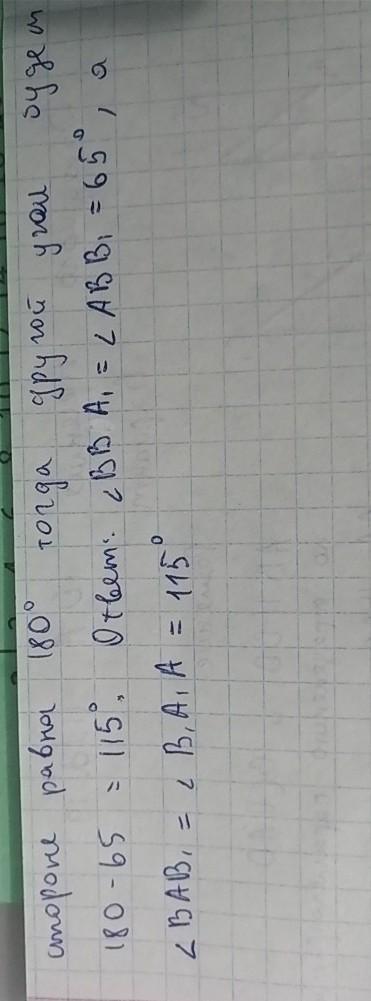 стороне равна 180° тогда другой угол будет
180-65 = 115°. Ответ: ∠BB A₁ = ∠ABB₁ = 65°, а
∠BAB₁ = ∠B₁A₁A = 115°